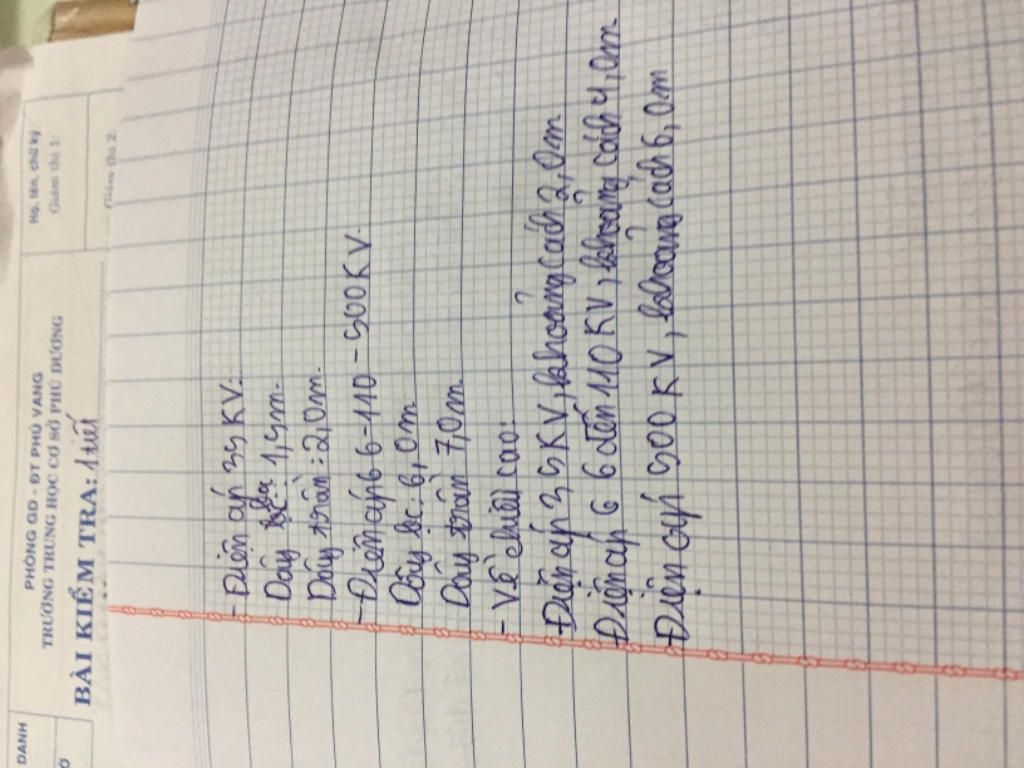 PHÒNG GD - ĐT PHÚ VANG
TRƯỜNG TRUNG HỌC CƠ SỞ PHÚ DƯƠNG
BÀI KIỂM TRA: 1 tiết
Họ, tên, chữ ký
Giám thị 1:
Giám thị 2:
DANH
- Điện áp 35 KV:
Dây bọc: 1,5m.
Dây trần: 2,0m.
- Điện áp 66-110-500KV.
Dây bọc: 6,0m
Dây trần 7,0m
- Về chiều cao:
Điện áp 35KV, khoảng cách 2,0m
Điện áp 66 đến 110KV, khoảng cách 4,0m
Điện áp 500KV, khoảng cách 6,0m